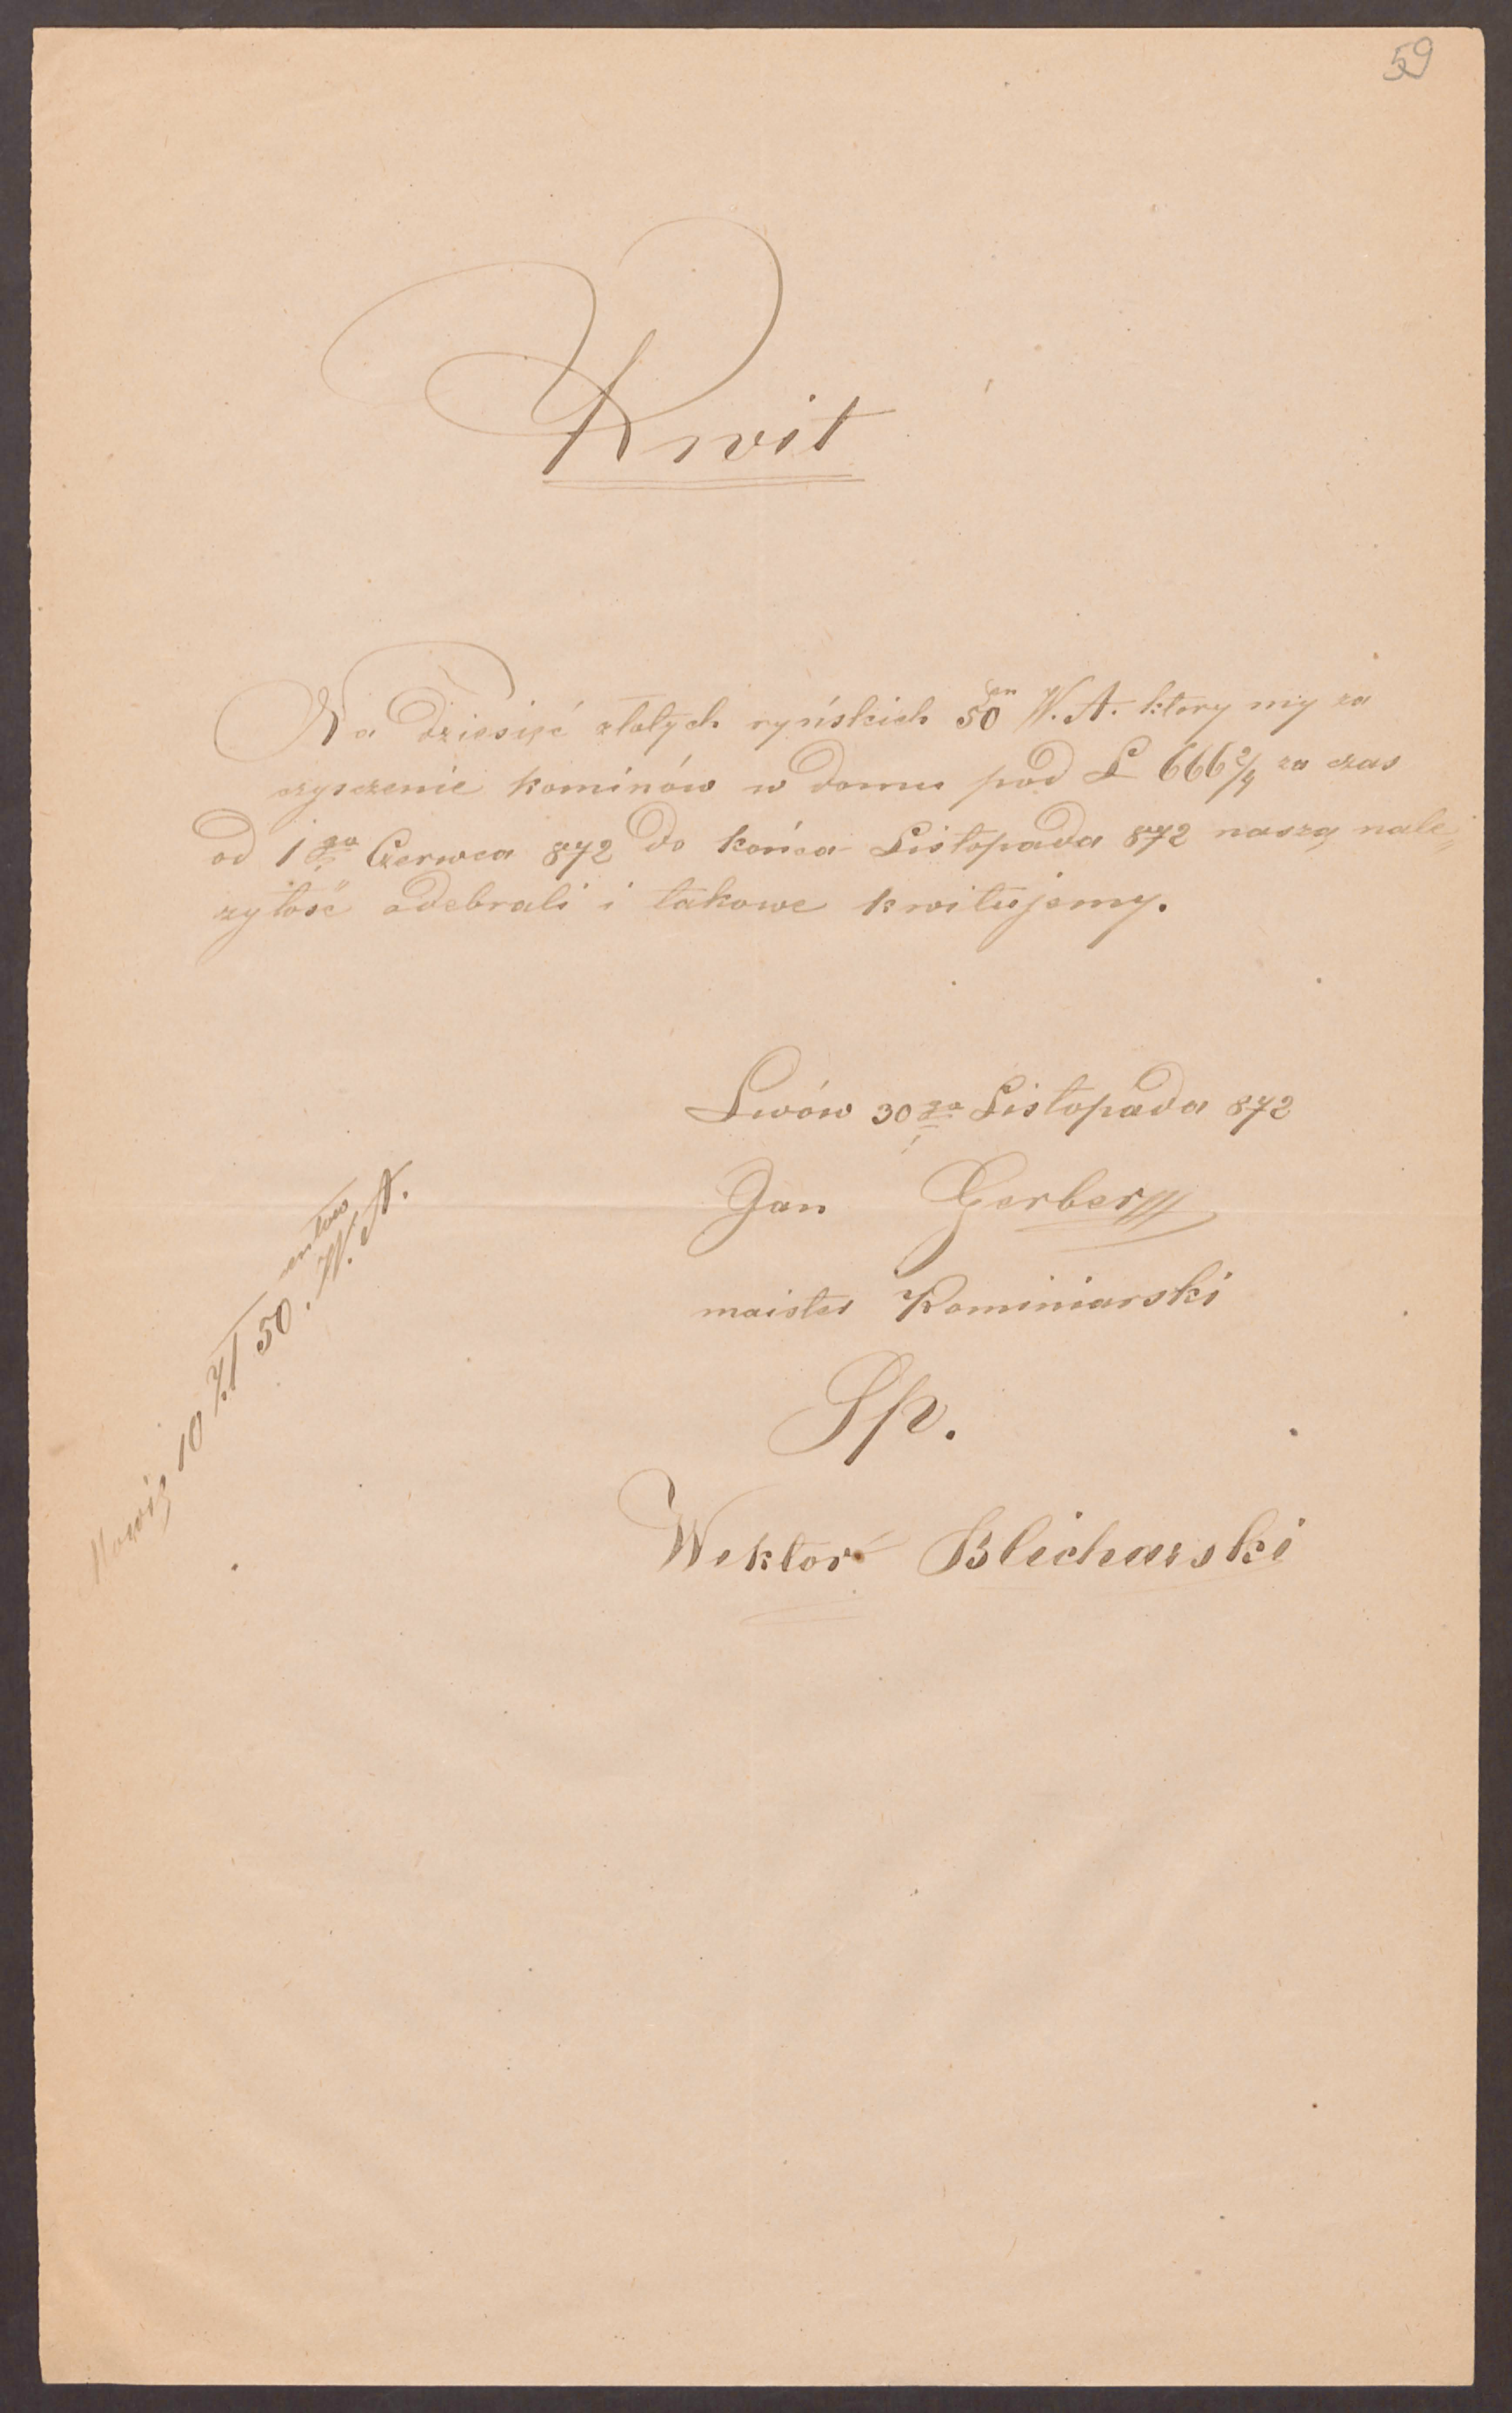 59
Kwit
Na Dziesięć złotych ryńskich 50 cn W. A. ktory my za
czysczenie kominów w domu pod L 666 2/4 za czas
od 1go Czerwca 872 do końca Listopada 872 naszą nale=
zytość odebrali i takowe kwitujemy.
Lwów 30go Listopada 872
Jan Gerber
maister Kominiarski
Sp.
Wiktor Blicharski
Mowię 10 Zł 50 centow W. A.